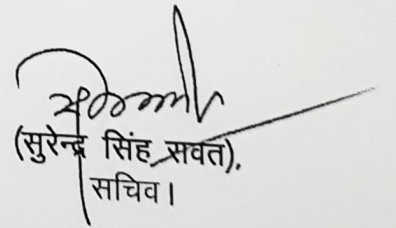 (सुरेन्द्र सिंह सवत).
सचिव।